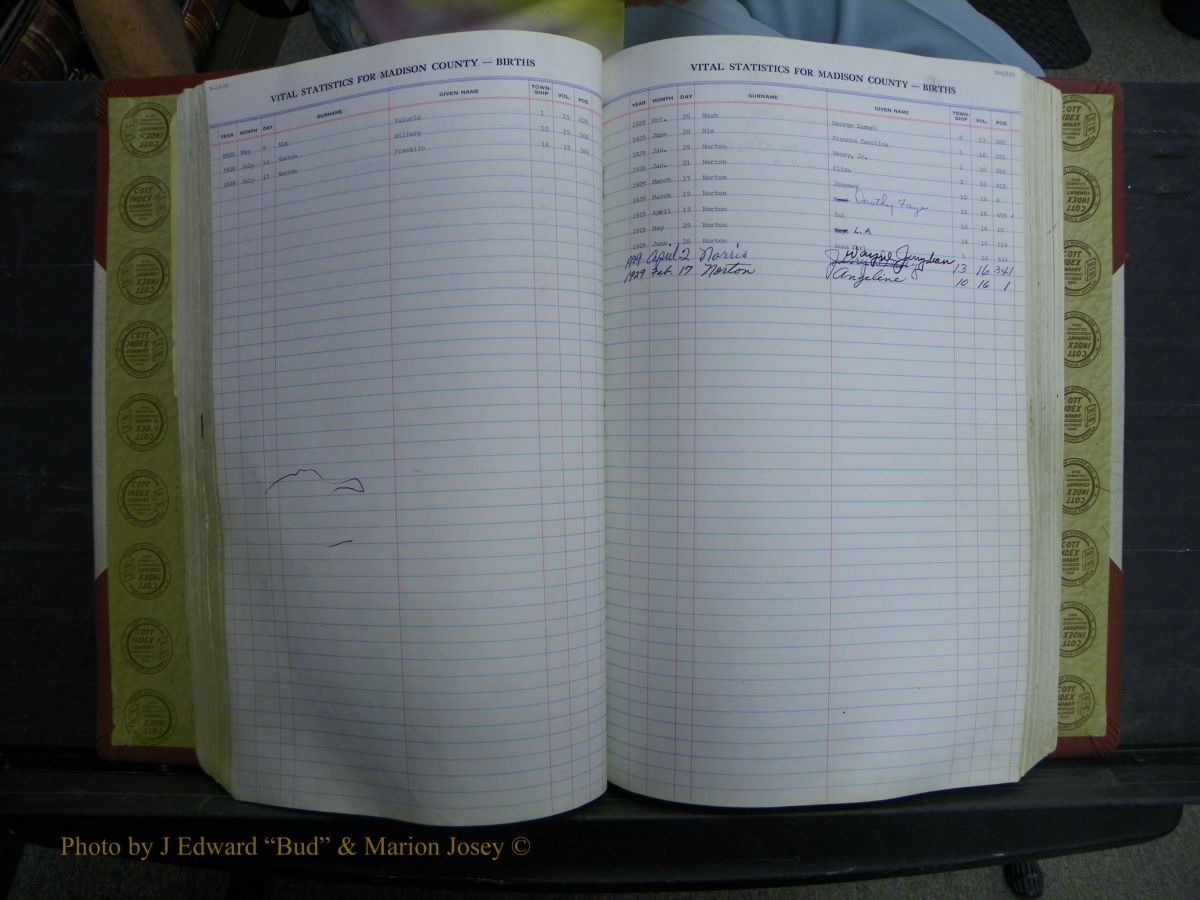 N-1928
VITAL STATISTICS FOR MADISON COUNTY — BIRTHS
YEAR MONTH DAY SURNAME GIVEN NAME TOWN-SHIP VOL. PGE.
1928 May 8 Nix Valoris 1 15
1928 July 14 Norton Hillery 10 15
1928 July 13 Norton Franklin 14 15
N-1929
VITAL STATISTICS FOR MADISON COUNTY — BIRTHS
YEAR MONTH DAY SURNAME GIVEN NAME TOWN-SHIP VOL. PGE.
1929 Oct. 26 Nash George Samuel 9 17
1929 June 26 Nix Frances Carolina 1 16
1929 Jan. 29 Norton Henry, Jr. 1 16
1929 Jan. 31 Norton Eliza 2 16 412
1929 March 17 Norton Johnney 10 16
1929 March 19 Norton Dorothy Faye 11 16 499
1929 April 13 Norton Sol 10 16 10
1929 May 29 Norton L.A. 14 16 119
1929 June 26 Norton Anna 5 16 533
1929 April 2 Norris Wayne Jerydean 13 16 341
1929 Feb. 17 Norton Angeline 10 16 1
COTT INDEX COMPANY
Photo by J Edward “Bud” & Marion Josey ©